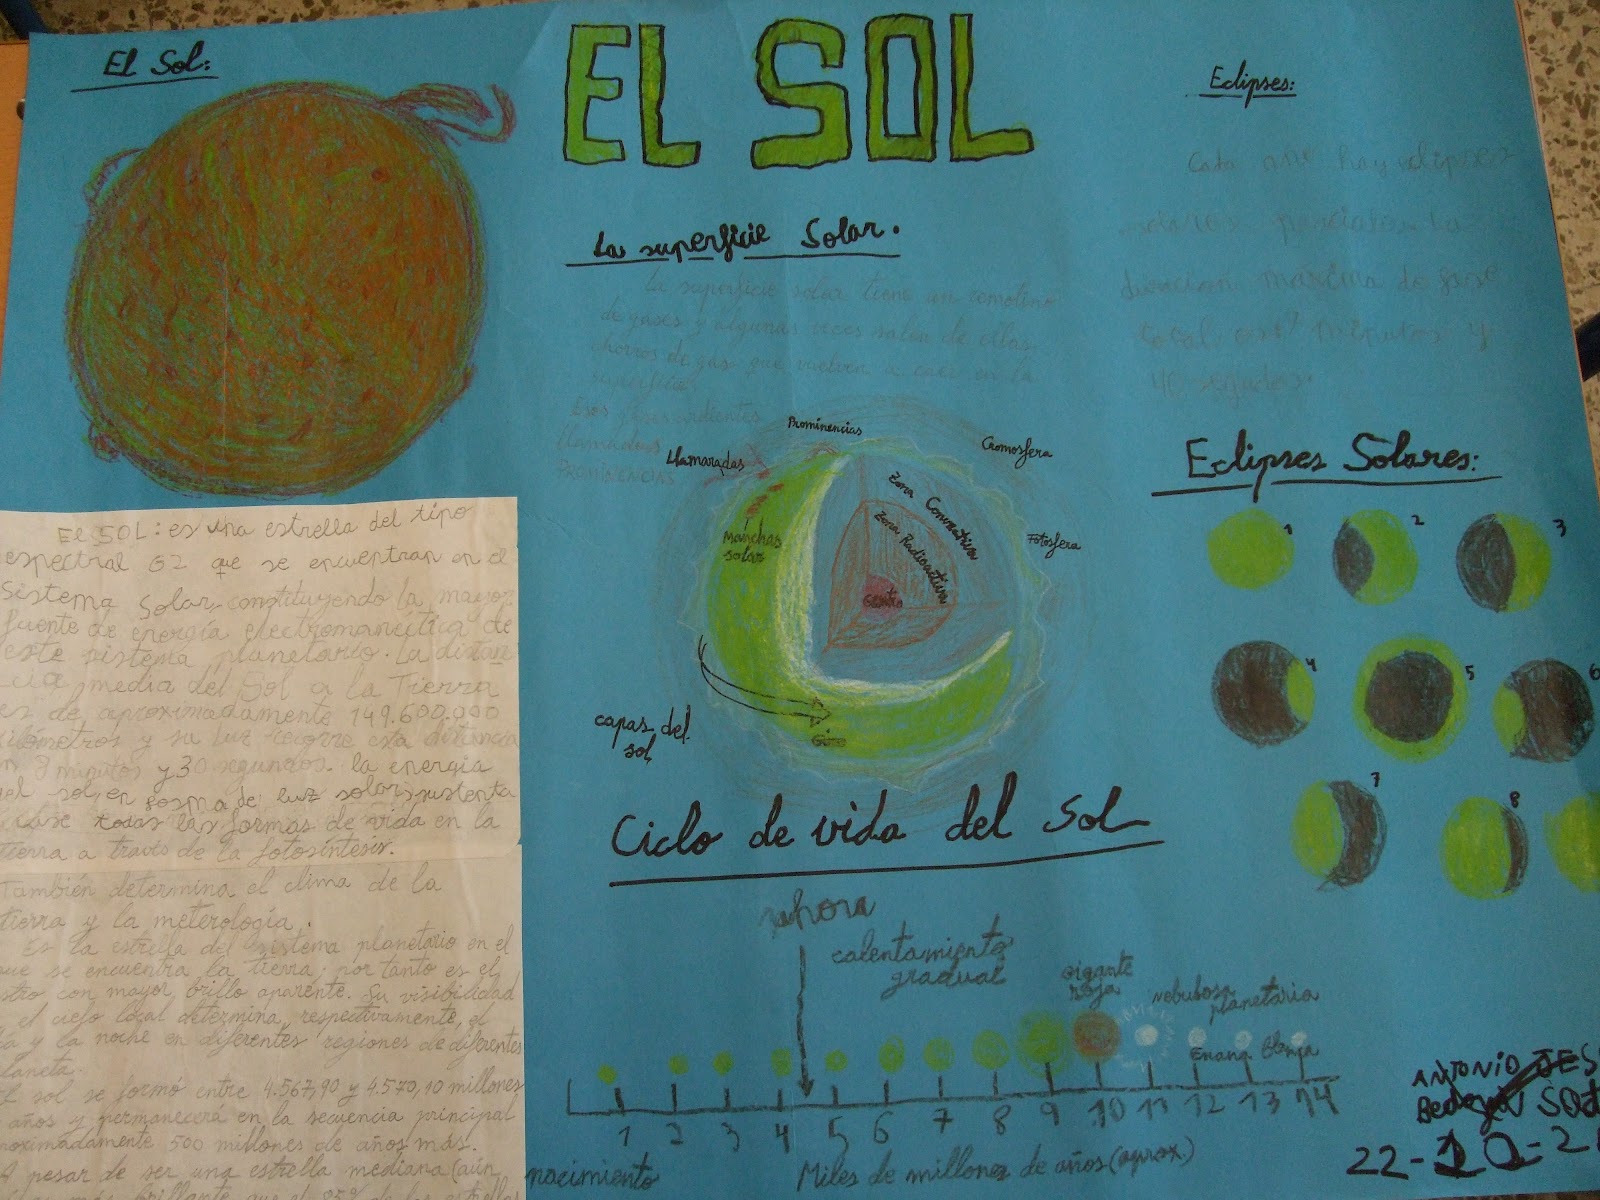 El Sol:
EL SOL
Eclipses:
Cada hay eclipses
solares parciales. La
duracion maxima de fase
total es 7 minutos y
40
La superficie Solar.
La superficie solar tiene un remolino
de gases y algunas veces salen de ellas
chorros de gas que vuelven a caer en la
superficie.
Esos
llamados
PROMINENCIAS
Prominencias
Llamaradas
Cromosfera
Manchas
solar
Zona Convectiva
Zona Radioactiva
Fotosfera
Centro
Giro
capas del
sol
Eclipses Solares:
1
2
3
4
5
6
7
8
El SOL: es una estrella del tipo
espectral G2 que se encuentran en el
Sistema Solar, constituyendo la mayor
fuente de energía electromanéctica de
este sistema planetario. La distan
cia media del Sol a la Tierra
es de aproximadamente 149.600.000
kilómetros y su luz recorre esta distancia
n 8 minutos y 30 segundos. la energía
del sol, en forma de luz solar, sustenta
case todas las formas de vida en la
tierra a través de la fotosíntesis.
También determina el clima de la
tierra y la meterología.
Es la estrella del sistema planetario en el
que se encuentra la tierra; por tanto es el
stro con mayor brillo aparente. Su visibilidad
el cielo local determina, respectivamente, el
ía y la noche en diferentes regiones de diferentes
laneta.
El sol se formó entre 4.567,90 y 4.570,10 millones
años y permanecerá en la secuencia principal
proximadamente 500 millones de años más.
A pesar de ser una estrella mediana (aún
más brillante que el 85% de las estrellas
Ciclo de vida del Sol
ahora
calentamiento
gradual
gigante
roja
nebulosa
planetaria
Enana Blanca
1 2 3 4 5 6 7 8 9 10 11 12 13 14
nacimiento
Miles de millones de años (aprox.)
ANTONIO JES
22-10-2